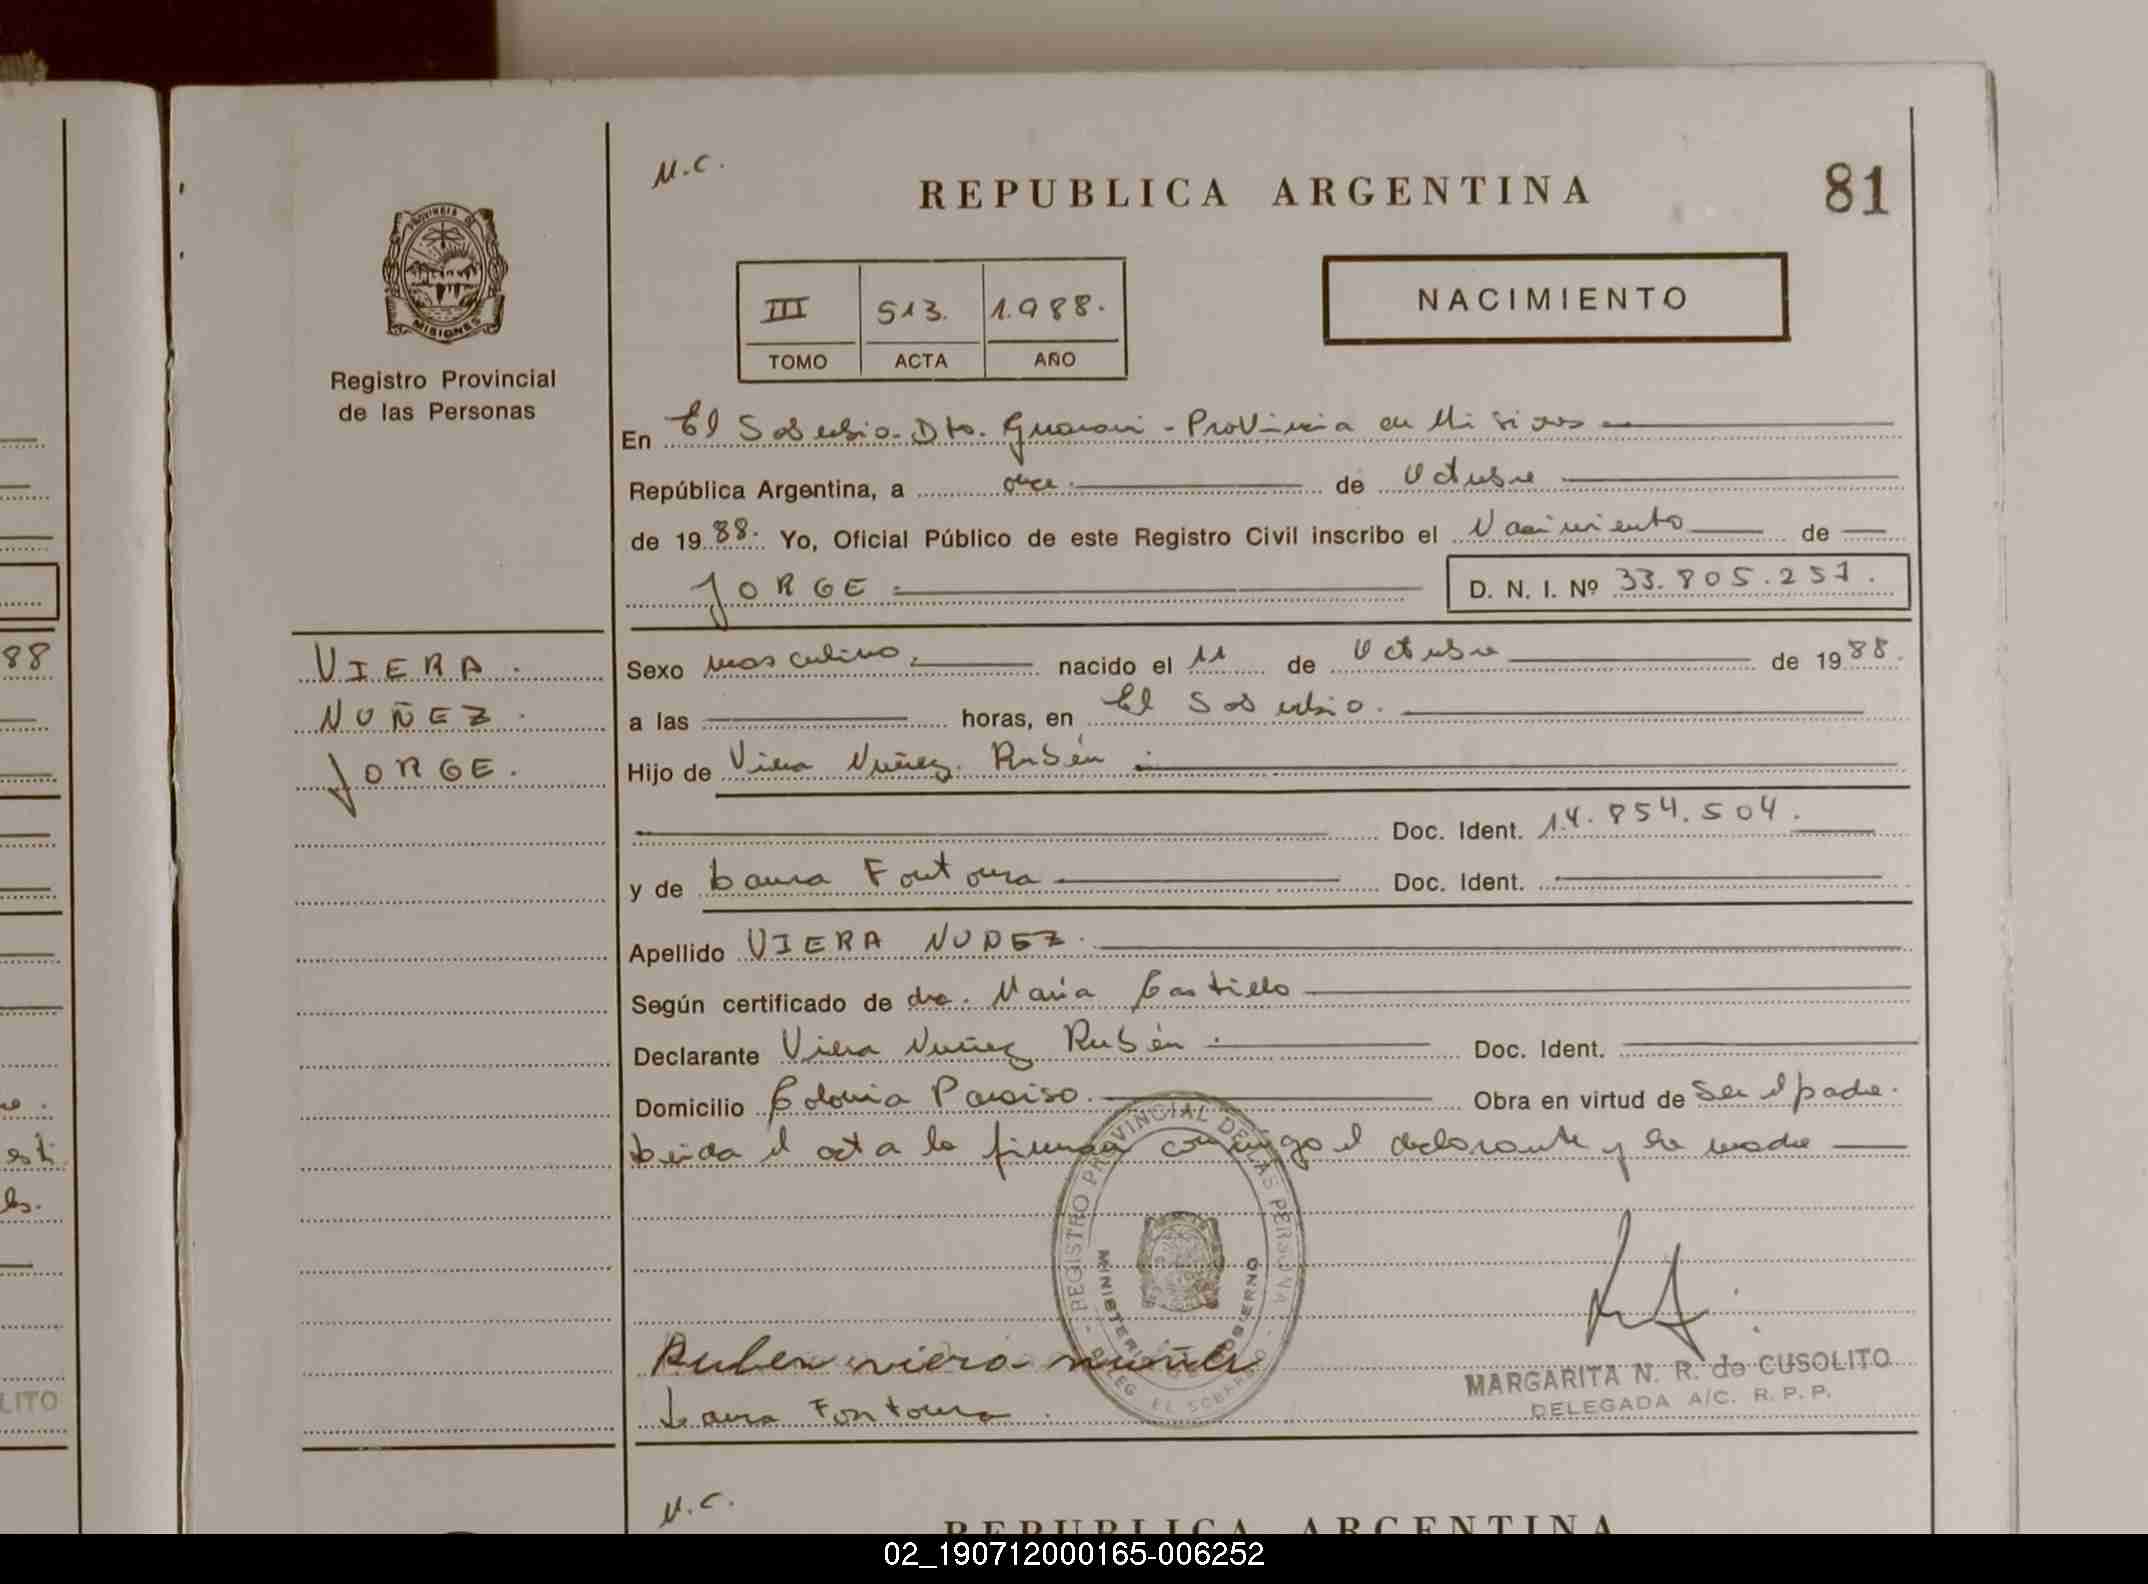 88
esti
les.
LITO
PROVINCIA DE
MISIONES
Registro Provincial
de las Personas
VIERA.
NUÑEZ.
JORGE.
N.C.
REPUBLICA ARGENTINA
81
III 513. 1.988.
TOMO ACTA AÑO
NACIMIENTO
En El Soberbio. Dto. Guarani - Provincia de Misiones
República Argentina, a once. de Octubre
de 1988. Yo, Oficial Público de este Registro Civil inscribo el Nacimiento de
JORGE D. N. I. Nº 33.805.257.
Sexo masculino. nacido el 11 de Octubre de 1988.
a las horas, en El Soberbio.
Hijo de Viera Nuñez. Rubén
Doc. Ident. 14.854.504.
y de Laura Fontoura Doc. Ident.
Apellido VIERA NUÑEZ.
Según certificado de dra. María Castillo
Declarante Viera Nuñez Rubén. Doc. Ident.
Domicilio Colonia Paraiso. Obra en virtud de Ser el padre.
Leida el acta la firman conmigo el declarante y la madre
REGISTRO PROVINCIAL DE LAS PERSONAS
MINISTERIO DE GOBIERNO
DELEG. EL SOBERBIO
Ruben viera nuñez
Laura Fontoura.
MARGARITA N. R. de CUSOLITO
DELEGADA A/C. R. P. P.
N.C.
REPUBLICA ARGENTINA
02_190712000165-006252